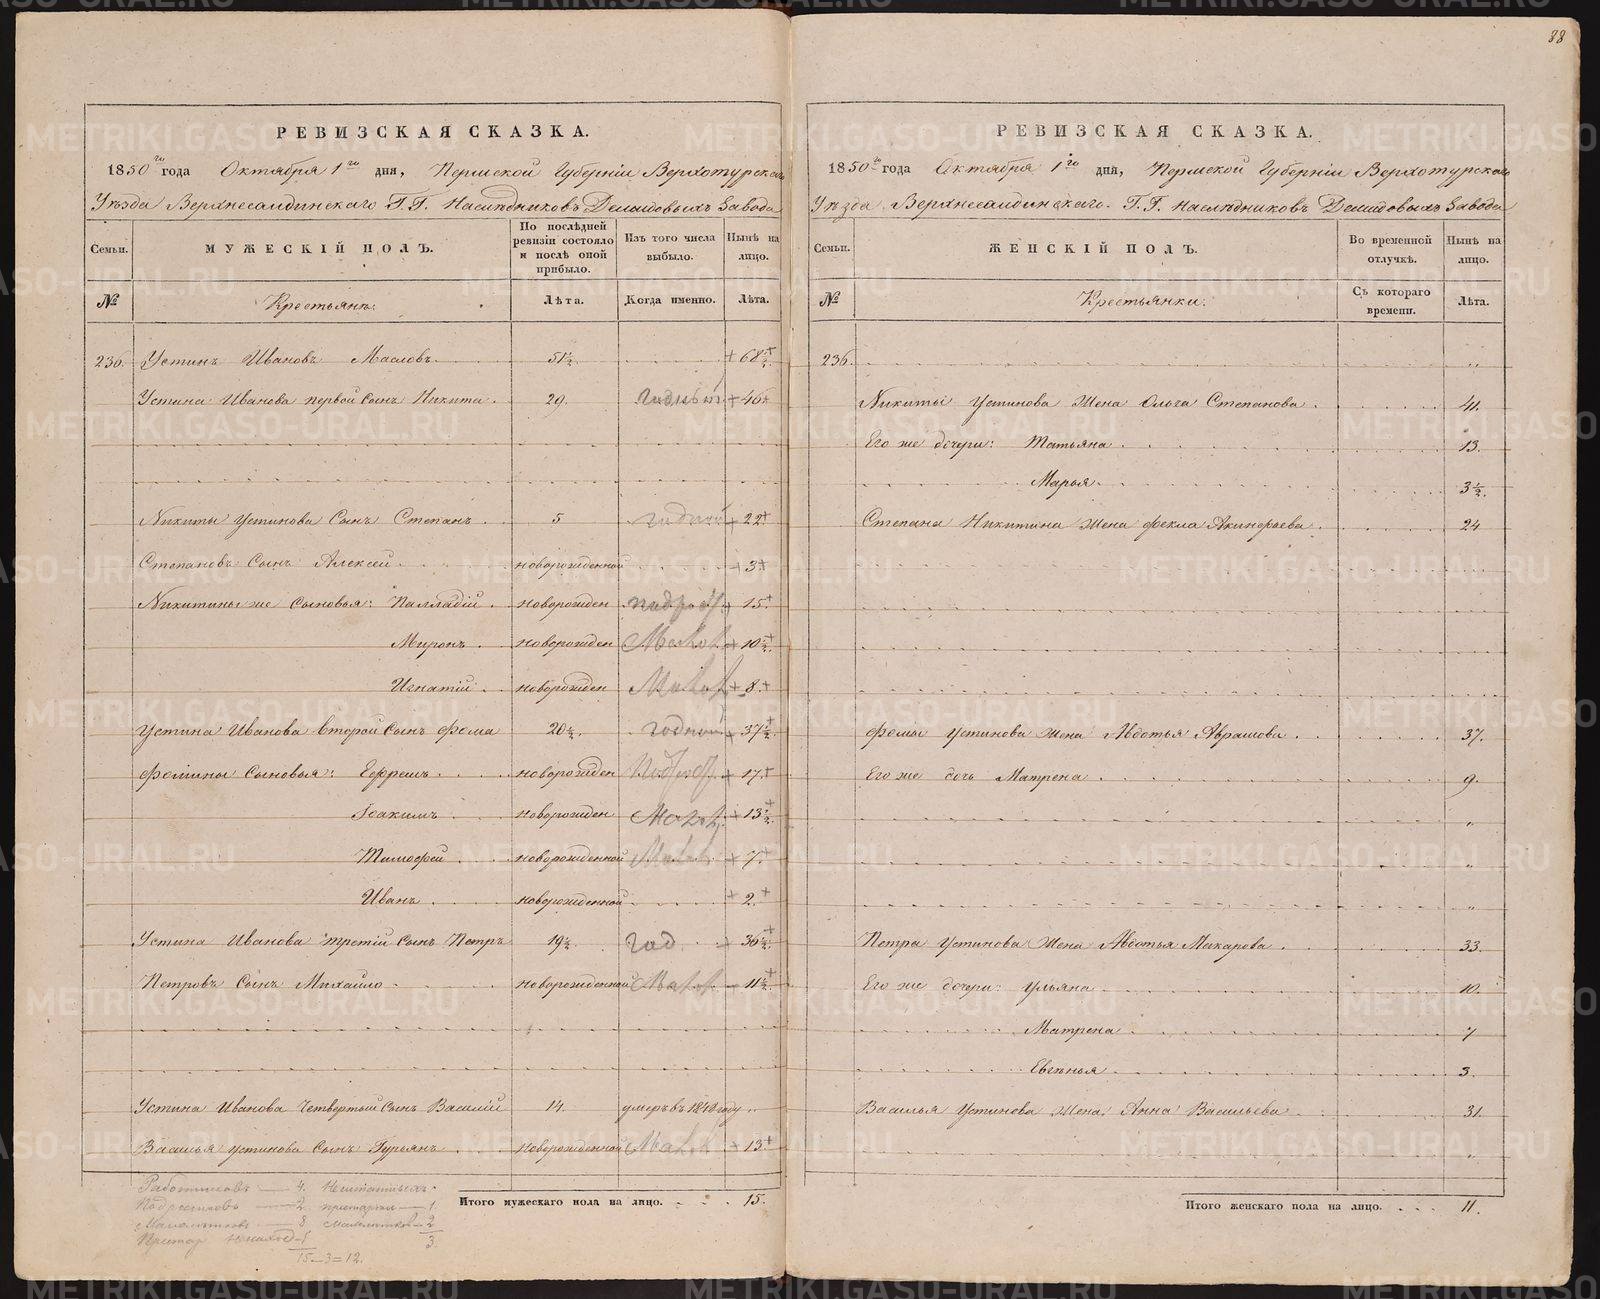 88
РЕВИЗСКАЯ СКАЗКА.
1850го года Октября 1го дня, Пермской Губерніи Верхотурскаго
Уѣзда Верхнесалдинскаго Г.Г. Наслѣдниковъ Демидовыхъ Завода
Семьи.
МУЖЕСКІЙ ПОЛЪ.
По послѣдней ревизіи состояло и послѣ оной прибыло.
Изъ того числа выбыло.
Нынѣ на лицо.
№
Крестьянъ.
Лѣта.
Когда именно.
Лѣта.
236. Устинъ Ивановъ Масловъ. 51½ + 68½ +
Устина Иванова первой сынъ Никита. 29. годный + 46 +
Никиты Устинова Сынъ Степанъ. 5 годный + 22 +
Степановъ Сынъ Алексей. новорожденной + 3 +
Никитины же Сыновья: Палладій. новорожден + 15. +
Миронъ. новорожден Малол. + 10½ +
Игнатій. новорожден Малол. + 8. +
Устина Иванова второй Сынъ Фома 20½. годный + 37½ +
Фомины Сыновья: Ефремъ. новорожден + 17. +
Іоакимъ. новорожден Малол. + 13½ +
Тимофей новорожденной Малол. + 7. +
Иванъ. новорожденной + 2. +
Устина Иванова третій Сынъ Петръ 19½. год. + 36½ +
Петровъ Сынъ Михайло. новорожденной Малол. 11½ +
Устина Иванова Четвертый Сынъ Василій 14. умеръ въ году
Василья Устинова Сынъ Гурьянъ. новорожденной Малол. + 13 +
Итого мужескаго пола на лицо. 15.
Работниковъ — 4. Нештатныхъ.
Подростковъ — 2 престарел — 1.
Малолѣтковъ — 8 малолѣтков — 2
Престар — 1 3.
15—3=12.
РЕВИЗСКАЯ СКАЗКА.
1850го года Октября 1го дня, Пермской Губерніи Верхотурскаго
Уѣзда Верхнесалдинскаго Г.Г. Наслѣдниковъ Демидовыхъ Завода
Семьи.
ЖЕНСКІЙ ПОЛЪ.
Во временной отлучкѣ.
Нынѣ на лицо.
№
Крестьянки.
Съ котораго времени.
Лѣта.
236.
Никиты Устинова Жена Ольга Степанова. 41.
Его же дочери: Татьяна. 13.
Марья. 3½.
Степана Никитина жена Фекла Акинфаева. 24
Фомы Устинова жена Авдотья Абрамова. 37.
Его же дочь Матрена 9.
Петра Устинова Жена Авдотья Макарова. 33.
Его же дочери: Ульяна 10.
Матрена 7
Евгенья 3.
Василья Устинова Жена Анна Васильева. 31.
Итого женскаго пола на лицо. 11.
METRIKI.GASO-URAL.RU